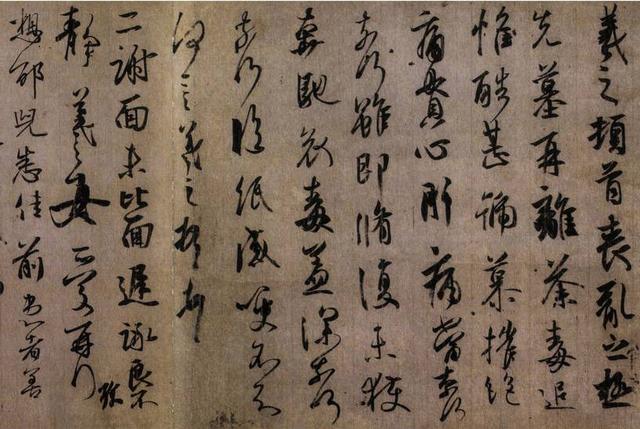 羲之頓首喪亂之極
先墓再離荼毒追
惟酷甚號慕摧絶
痛貫心肝痛當柰何
柰何雖即脩復未獲
奔馳哀毒益深柰何
柰何臨紙感哽不知
何言羲之頓首頓首
二謝面未比面遲詠良不
靜羲之女愛再拜
想邵兒悉佳前患者善